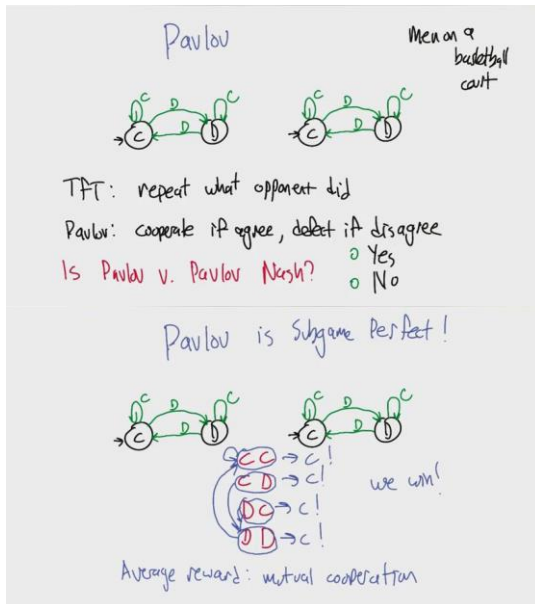 Pavlov
Men on a
basketball
court
C D C
C D D
C D C
C D D
TFT: repeat what opponent did
Pavlov: cooperate if agree, defect if disagree
Is Pavlov v. Pavlov Nash?
o Yes
o No
Pavlov is Subgame Perfect!
C D C
C D D
C D C
C D D
C C → C!
C D → C!
D C → C!
D D → C!
we win!
Average reward: mutual cooperation